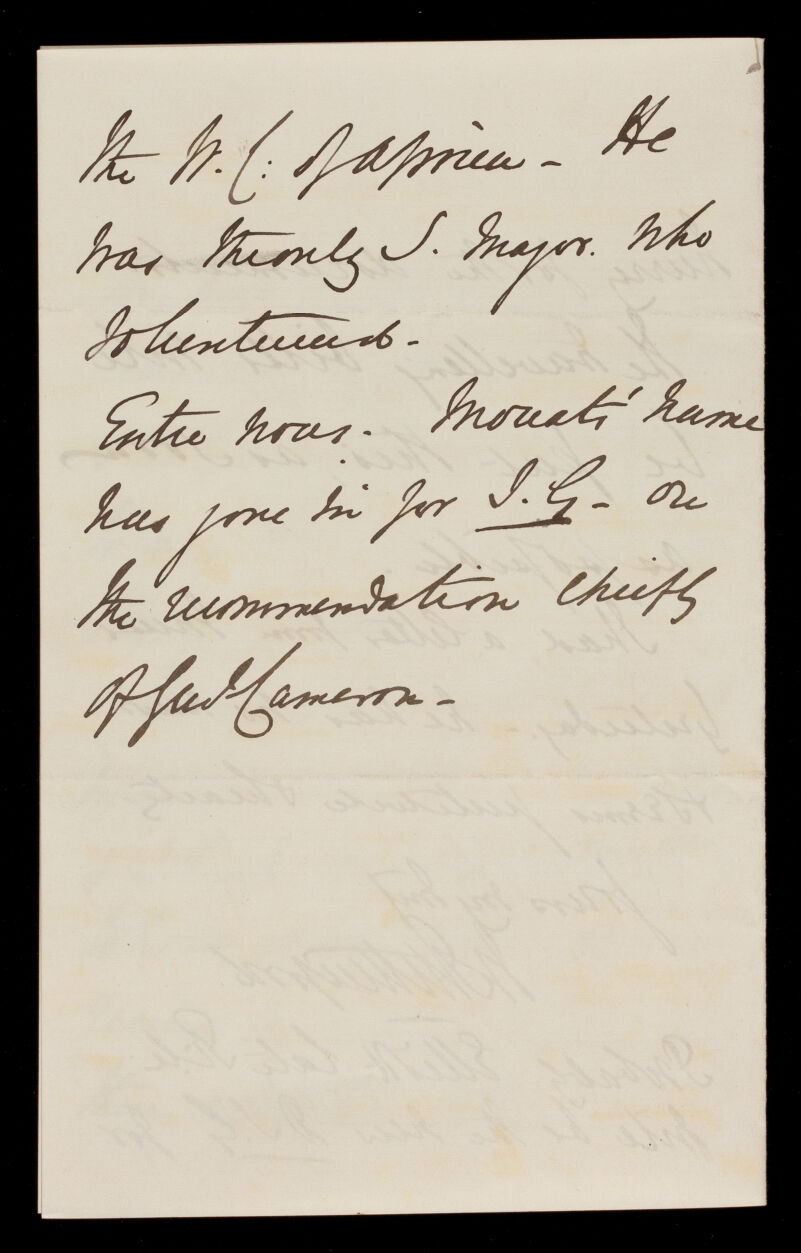 the W. C: of Africa - He
was the only S. Major. who
volunteered -
Entre nous - Mouats' name
has gone in for I. G - on
the recommendation chiefly
of Genl Cameron -